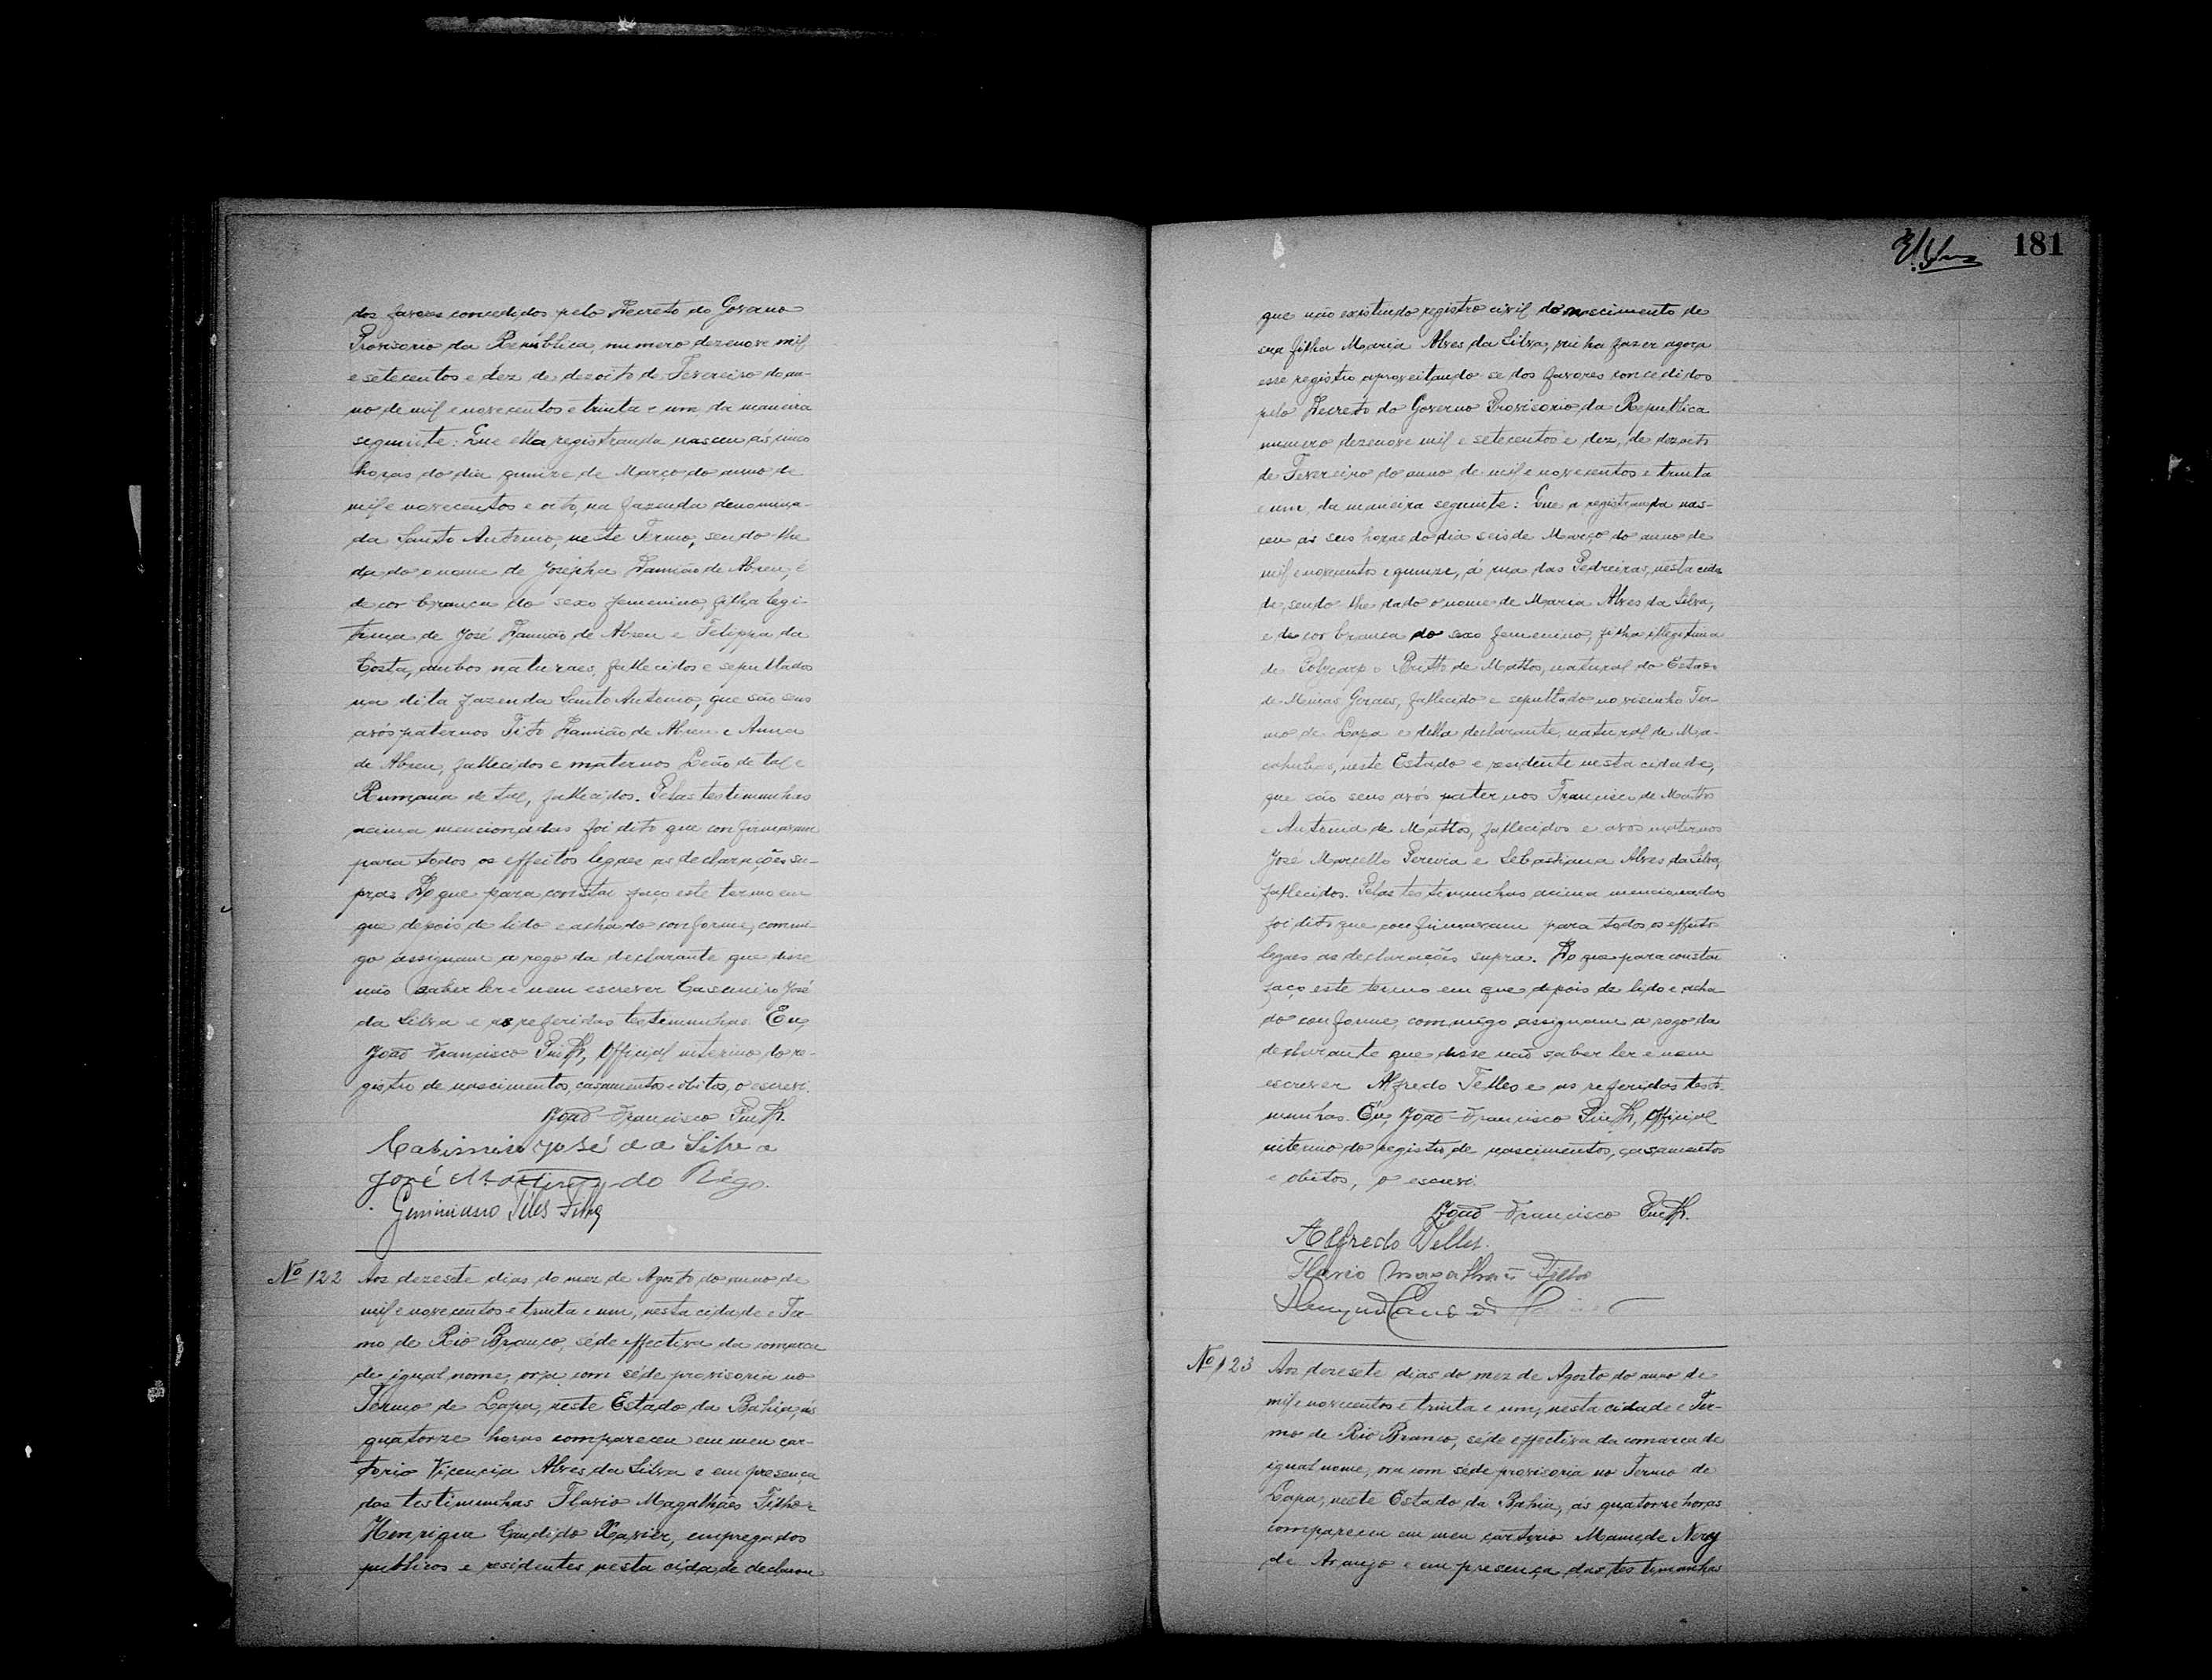 dos favores concedidos pelo Decreto do Governo
Provisorio da Republica, numero dezenove mil
e setecentos e dez de dezoito de Fevereiro do an-
no de mil e novecentos e trinta e um da maneira
seguinte: Que ella registranda nasceu ás cinco
horas do dia quinze de Março do anno de
mil e novecentos e oito, na fazenda denomina-
da Santo Antonio, neste Termo, sendo-lhe
dado o nome de Josepha Damião de Abreu, é
de cor branca do sexo femenino, filha legi-
tima de José Damião de Abreu e Felippa da
Costa, ambos naturaes, fallecidos e sepultados
na dita fazenda Santo Antonio, que são seus
avós paternos Tito Damião de Abreu e Anna
de Abreu, fallecidos e maternos Leão de tal e
Rumana de tal, fallecidos. Pelas testimunhas
acima mencionadas foi dito que confirmavam
para todos os effeitos legaes as declarações su-
pras. Do que para constar faço este termo em
que depois de lido e achado conforme, commi-
go assignam a rogo da declarante que disse
não saber ler e nem escrever Casemiro José
da Silva e as referidas testimunhas. Eu,
João Francisco, Official interino do re-
gistro de nascimentos, casamentos e obitos, o escrevi.
João Francisco
Casimiro José da Silva
José Martins do Rêgo.
Geminiano Teles Filho
Nº 122 Aos dezesete dias do mez de Agosto do anno de
mil e novecentos e trinta e um, nesta cidade e Ter-
mo de Rio Branco, séde effectiva da comarca
de igual nome, ora com séde provisoria no
Termo de Lapa, neste Estado da Bahia, ás
quatorze horas compareceu em meu car-
torio Vicencia Alves da Silva e em presença
das testimunhas Flavio Magalhães Filho e
Henrique Candido Xavier, empregados
publicos e residentes nesta cidade declarou
181
que não existindo registro civil do nascimento de
sua filha Maria Alves da Silva, vinha fazer agora
esse registro aproveitando-se dos favores concedidos
pelo Decreto do Governo Provisorio da Republica
numero dezenove mil e setecentos e dez, de dezoito
de Fevereiro do anno de mil e novecentos e trinta
e um, da maneira seguinte: Que a registranda nas-
ceu as seis horas do dia seis de Março do anno de
mil e novecentos e quinze, á rua das Pedreiras, nesta cida
de, sendo-lhe dado o nome de Maria Alves da Silva,
e de cor branca do sexo femenino, filha illegitima
de Polycarpo Britto de Mattos, natural do Estado
de Minas Geraes, fallecido e sepultado no visinho Ter-
mo de Lapa e della declarante, natural de Ma-
cahubas, neste Estado e residente nesta cidade,
que são seus avós paternos Francisco de Mattos
e Antonia de Mattos, fallecidos e avos maternos
José Marcello Pereira e Sebastiana Alves da Silva,
fallecidos. Pelas testimunhas acima mencionadas
foi dito que confirmavam para todos os effeitos
legaes as declarações supra. Do que para constar
faço este termo em que depois de lido e acha-
do conforme, commigo assignam a rogo da
declarante que disse não saber ler e nem
escrever Alfredo Telles e as referidas testi-
munhas. Eu, João Francisco, Official
interino do registro de nascimentos, casamentos
e obitos, o escrevi.
João Francisco
Alfredo Telles.
Flavio Magalhães Filho
Nº 123 Aos dezesete dias do mez de Agosto do anno de
mil e novecentos e trinta e um, nesta cidade e Ter-
mo de Rio Branco, séde effectiva da comarca de
igual nome, ora com séde provisoria no Termo de
Lapa, neste Estado da Bahia, ás quatorze horas
compareceu em meu cartorio Mamede Nery
de Araujo e em presença das testimunhas